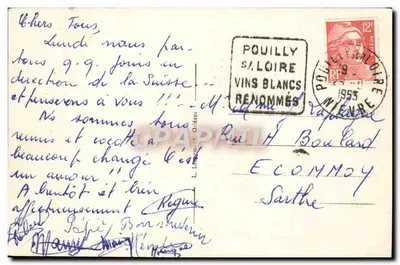 Chers Tous,
Lundi nous par-
tons q.q. jours en
direction de la Suisse
et penserons à vous !!!
Nous sommes tous
réunis et
beaucoup changé c'est
un amour !!
A bientôt et bien
affectueusement Regine
Bon souvenir
POUILLY
S/ LOIRE
VINS BLANCS
RENOMMÉS
POUILLY SUR LOIRE
1953
NIEVRE
12F
Rue M Boulard
ECOMMOY
Sarthe